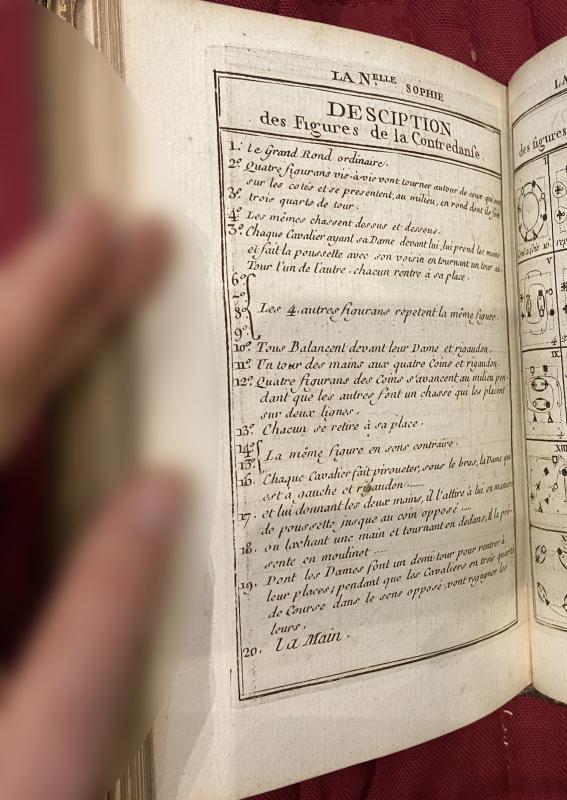 LA N.ELLE SOPHIE
DESCIPTION
des Figures de la Contredanse.
1.º le Grand Rond ordinaire.
2º Quatre figurans vis-à-vis vont tourner autour de ceux qui sont
sur les cotés et se presentent, au milieu, en rond dont ils font
3º trois quarts de tour.
4º Les mêmes chassent dessus et dessous.
3º Chaque Cavalier ayant sa Dame devant lui, lui prend les mains
et fait la poussette avec son voisin en tournant un tour au-
Tour l'un de l'autre. chacun rentre à sa place.
6º
7º
8º Les 4. autres figurans repetent la même figure.
9º
10º Tous Balancent devant leur Dame et rigaudon.
11º Un tour des mains aux quatre Coins et rigaudon.
12º Quatre figurans des Coins s'avancent au milieu pen-
dant que les autres font un chassé qui les placent
sur deux lignes.
13º Chacun se retire à sa place.
14º
15º La même figure en sens contraire.
16. Chaque Cavalier fait pirouetter, sous le bras, la Dame qui
est a gauche et rigaudon ......
17. et lui donnant les deux mains, il l'attire à lui en maniere
de poussette jusque au coin opposé ....
18. ou lachant une main et tournant en dedans, il la pré-
sente en moulinet ......
19. Dont les Dames font un demi-tour pour rentrer à
leur places; pendant que les Cavaliers en trois quarts
de Course dans le sens opposé, vont regagner les
leurs.
20. la Main.
LA
des figures
V
IX
XIII